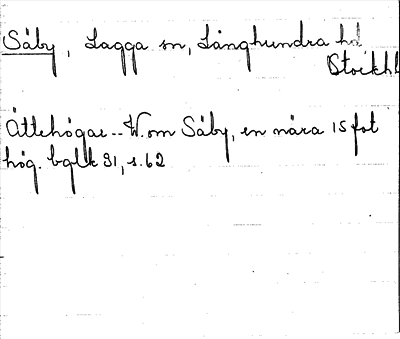 Såby, Lagga sn, Långhundra hd
Stockh
Ättehögar.. W. om Såby, en nära 15 fot
hög. bglk 31, s. 62